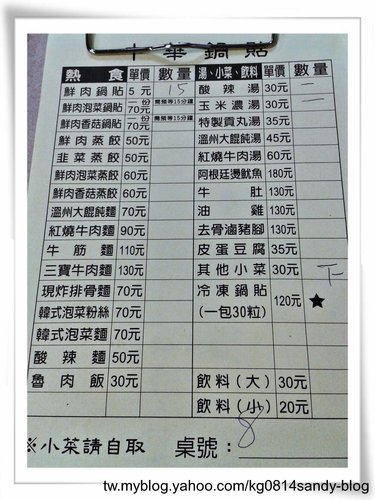 十華鍋貼
熱食 單價 數量 湯、小菜、飲料 單價 數量
鮮肉鍋貼 5元 15 酸辣湯 30元 二
鮮肉泡菜鍋貼 一份70元 需預等15分鐘 玉米濃湯 30元 二
鮮肉香菇鍋貼 一份70元 需預等15分鐘 特製貢丸湯 35元
鮮肉蒸餃 50元 溫州大餛飩湯 45元
韭菜蒸餃 50元 紅燒牛肉湯 60元
鮮肉泡菜蒸餃 60元 阿根廷燙魷魚 180元
鮮肉香菇蒸餃 60元 牛肚 130元
溫州大餛飩麵 70元 油雞 130元
紅燒牛肉麵 90元 去骨滷豬腳 130元
牛筋麵 110元 皮蛋豆腐 35元
三寶牛肉麵 130元 其他小菜 30元 下
現炸排骨麵 70元 冷凍鍋貼 120元 ★
韓式泡菜粉絲 70元 (一包30粒)
韓式泡菜麵 70元
酸辣麵 50元
魯肉飯 30元 飲料(大) 30元
飲料(小) 20元
※小菜請自取 桌號: 8
tw.myblog.yahoo.com/kg0814sandy-blog